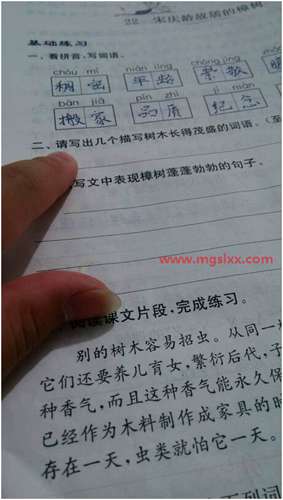 22 宋庆龄故居的樟树
基础练习
一、看拼音,写词语。
chóu mì nián líng chóng jìng
稠密 年龄 崇敬
bān jiā pǐn zhì jì niàn
搬家 品质 纪念
二、请写出几个描写树木长得茂盛的词语。(至
写文中表现樟树蓬蓬勃勃的句子。
www.mgslxx.com
阅读课文片段,完成练习。
别的树木容易招虫。从同一
它们还要养儿育女,繁衍后代,子
种香气,而且这种香气能永久保
已经作为木料制作成家具的时
存在一天,虫类就怕它一天。